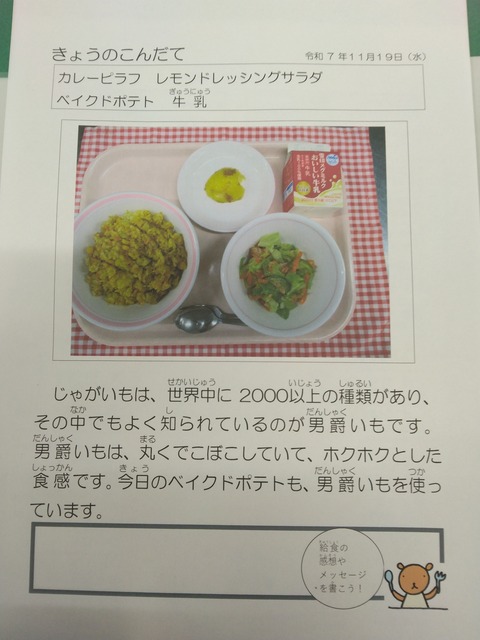 きょうのこんだて
令和7年11月19日（水）
カレーピラフ　レモンドレッシングサラダ
ぎゅうにゅう
ベイクドポテト　牛乳
おいしい牛乳
せかいじゅう　いじょう　しゅるい
じゃがいもは、世界中に2000以上の種類があり、
なか　し　だんしゃく
その中でもよく知られているのが男爵いもです。
だんしゃく　まる
男爵いもは、丸くでこぼこしていて、ホクホクとした
しょっかん　きょう　だんしゃく　つか
食感です。今日のベイクドポテトも、男爵いもを使っ
ています。
給食の
感想や
メッセージ
を書こう！